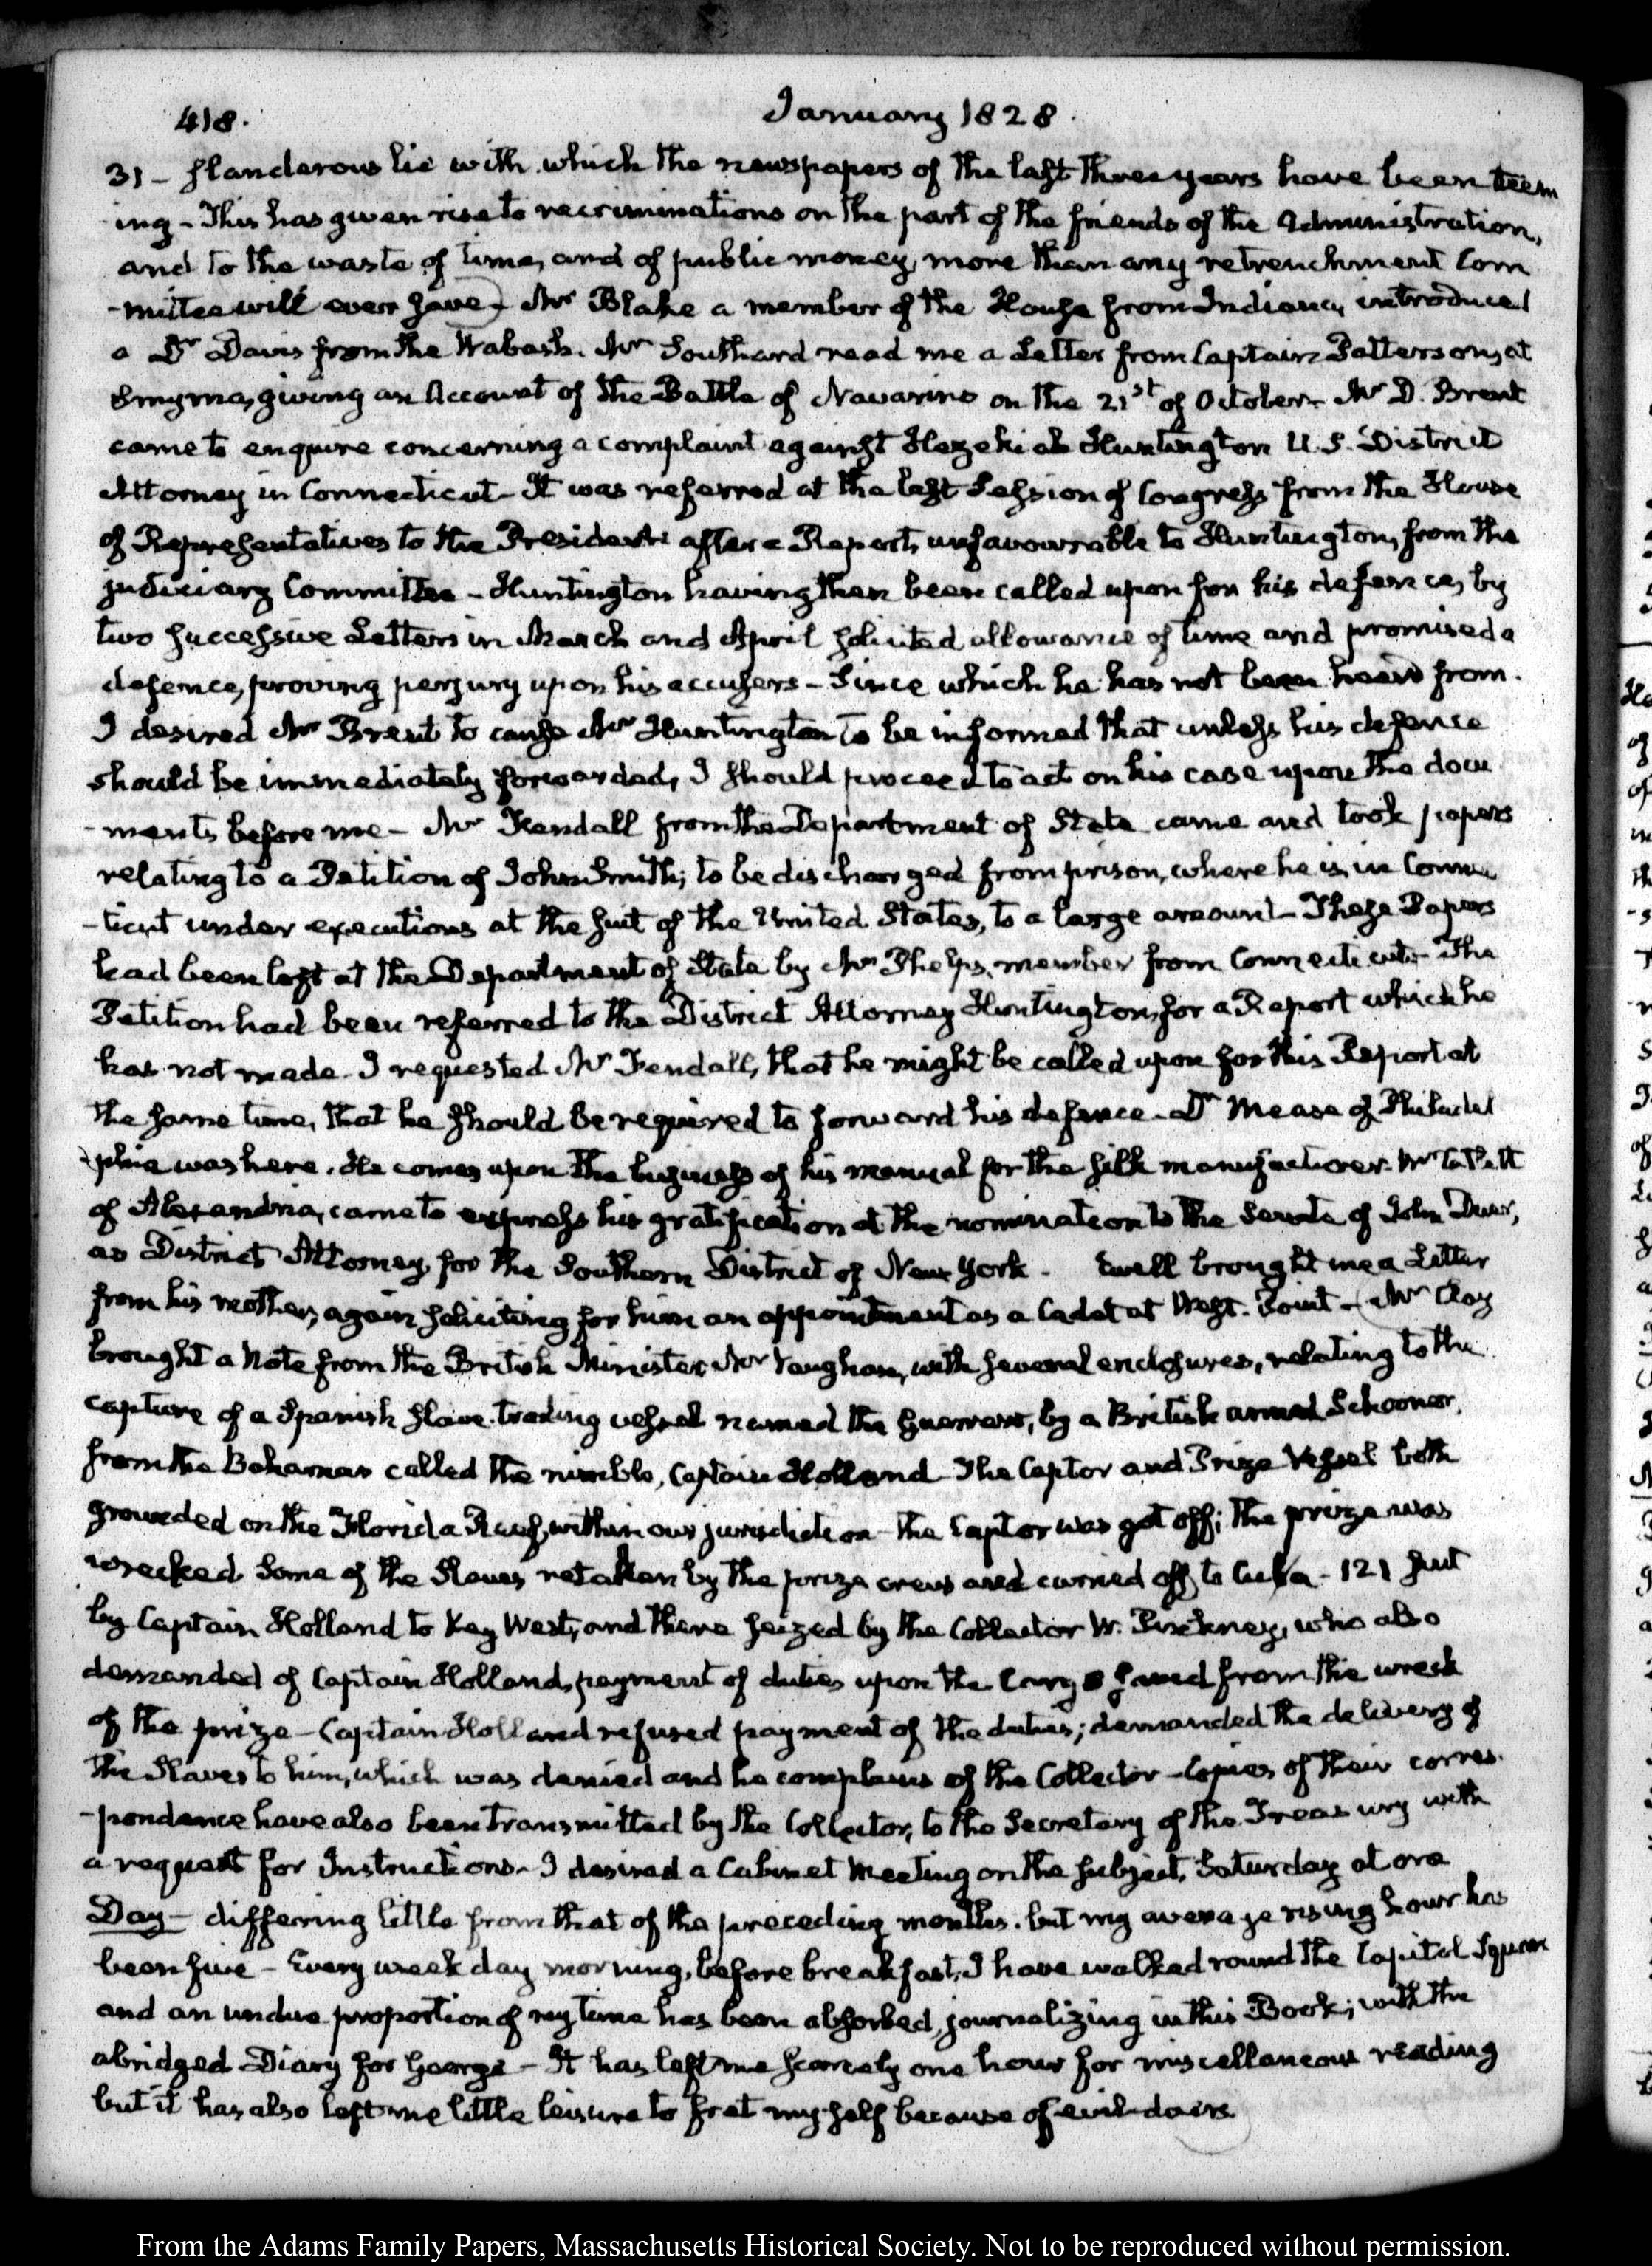 418.
January 1828.
31 - slanderous lie with which the newspapers of the last three years have been teem
ing - This has given rise to recriminations on the part of the friends of the Administration,
and to the waste of time, and of public money, more than any retrenchment Com
-mittee will ever save - Mr Blake a member of the House from Indiana, introduced
a Dr Davis from the Wabash. Mr Southard read me a Letter from Captain Patterson, at
Smyrna, giving an Account of the Battle of Navarino on the 21st of October. Mr D. Brent
came to enquire concerning a complaint against Hezekiah Huntington U.S. District
Attorney in Connecticut - It was referred at the last Session of Congress from the House
of Representatives to the President after a Report, unfavourable to Huntington, from the
judiciary Committee - Huntington having then been called upon for his defence, by
two successive Letters in March and April solicited allowance of time and promised a
defence, proving perjury upon his accusers - Since which he has not been heard from.
I desired Mr Brent to cause Mr Huntington to be informed that unless his defence
should be immediately forwarded, I should proceed to act on his case upon the docu
-ments before me - Mr Kendall from the Department of State came and took papers
relating to a Petition of John Smith; to be discharged from prison, where he is, in Connec
-ticut under executions at the suit of the United States, to a large amount - These Papers
had been left at the Department of State by Mr Phelps, member from Connecticut - The
Petition had been referred to the District Attorney Huntington, for a Report which he
has not made. I requested Mr Kendall, that he might be called upon for this Report at
the same time, that he should be required to forward his defence - Dr Mease of Philadel
-phia was here. He comes upon the business of his manual for the silk manufacturer. Mr
of Alexandria, came to express his gratification at the nomination to the Senate of John Duer,
as District Attorney for the Southern District of New York - Ewell brought me a Letter
from his mother, again soliciting for him an appointment as a Cadet at West-Point - Mr Clay
brought a Note from the British Minister Mr Vaughan, with several enclosures, relating to the
capture of a Spanish slave-trading vessel named the Guerrero, by a British armed Schooner,
from the Bahamas called the nimble, Captain Holland. The Captor and Prize Vessel both
grounded on the Florida Reef, within our jurisdiction - the Captor was got off; the prize was
wrecked some of the Slaves retaken by the prize crew and carried off to Cuba - 121 sent
by Captain Holland to Key West, and there seized by the Collector W. Pinkney, who also
demanded of Captain Holland, payment of duties upon the Cargo saved from the wreck
of the prize - Captain Holland refused payment of the duties; demanded the delivery of
the Slaves to him, which was denied and he complains of the Collector - Copies of their corres
-pondence have also been transmitted by the Collector, to the Secretary of the Treasury with
a request for Instructions - I desired a Cabinet Meeting on the subject, Saturday at one
Day - differing little from that of the preceding months. but my average rising hour has
been five - Every week day morning, before breakfast, I have walked round the Capitol Square
and an undue proportion of my time has been absorbed, journalizing in this Book; with the
abridged Diary for George - It has left me scarcely one hour for miscellaneous reading
but it has also left me little leisure to fret my-self because of evil-doers.
From the Adams Family Papers, Massachusetts Historical Society. Not to be reproduced without permission.